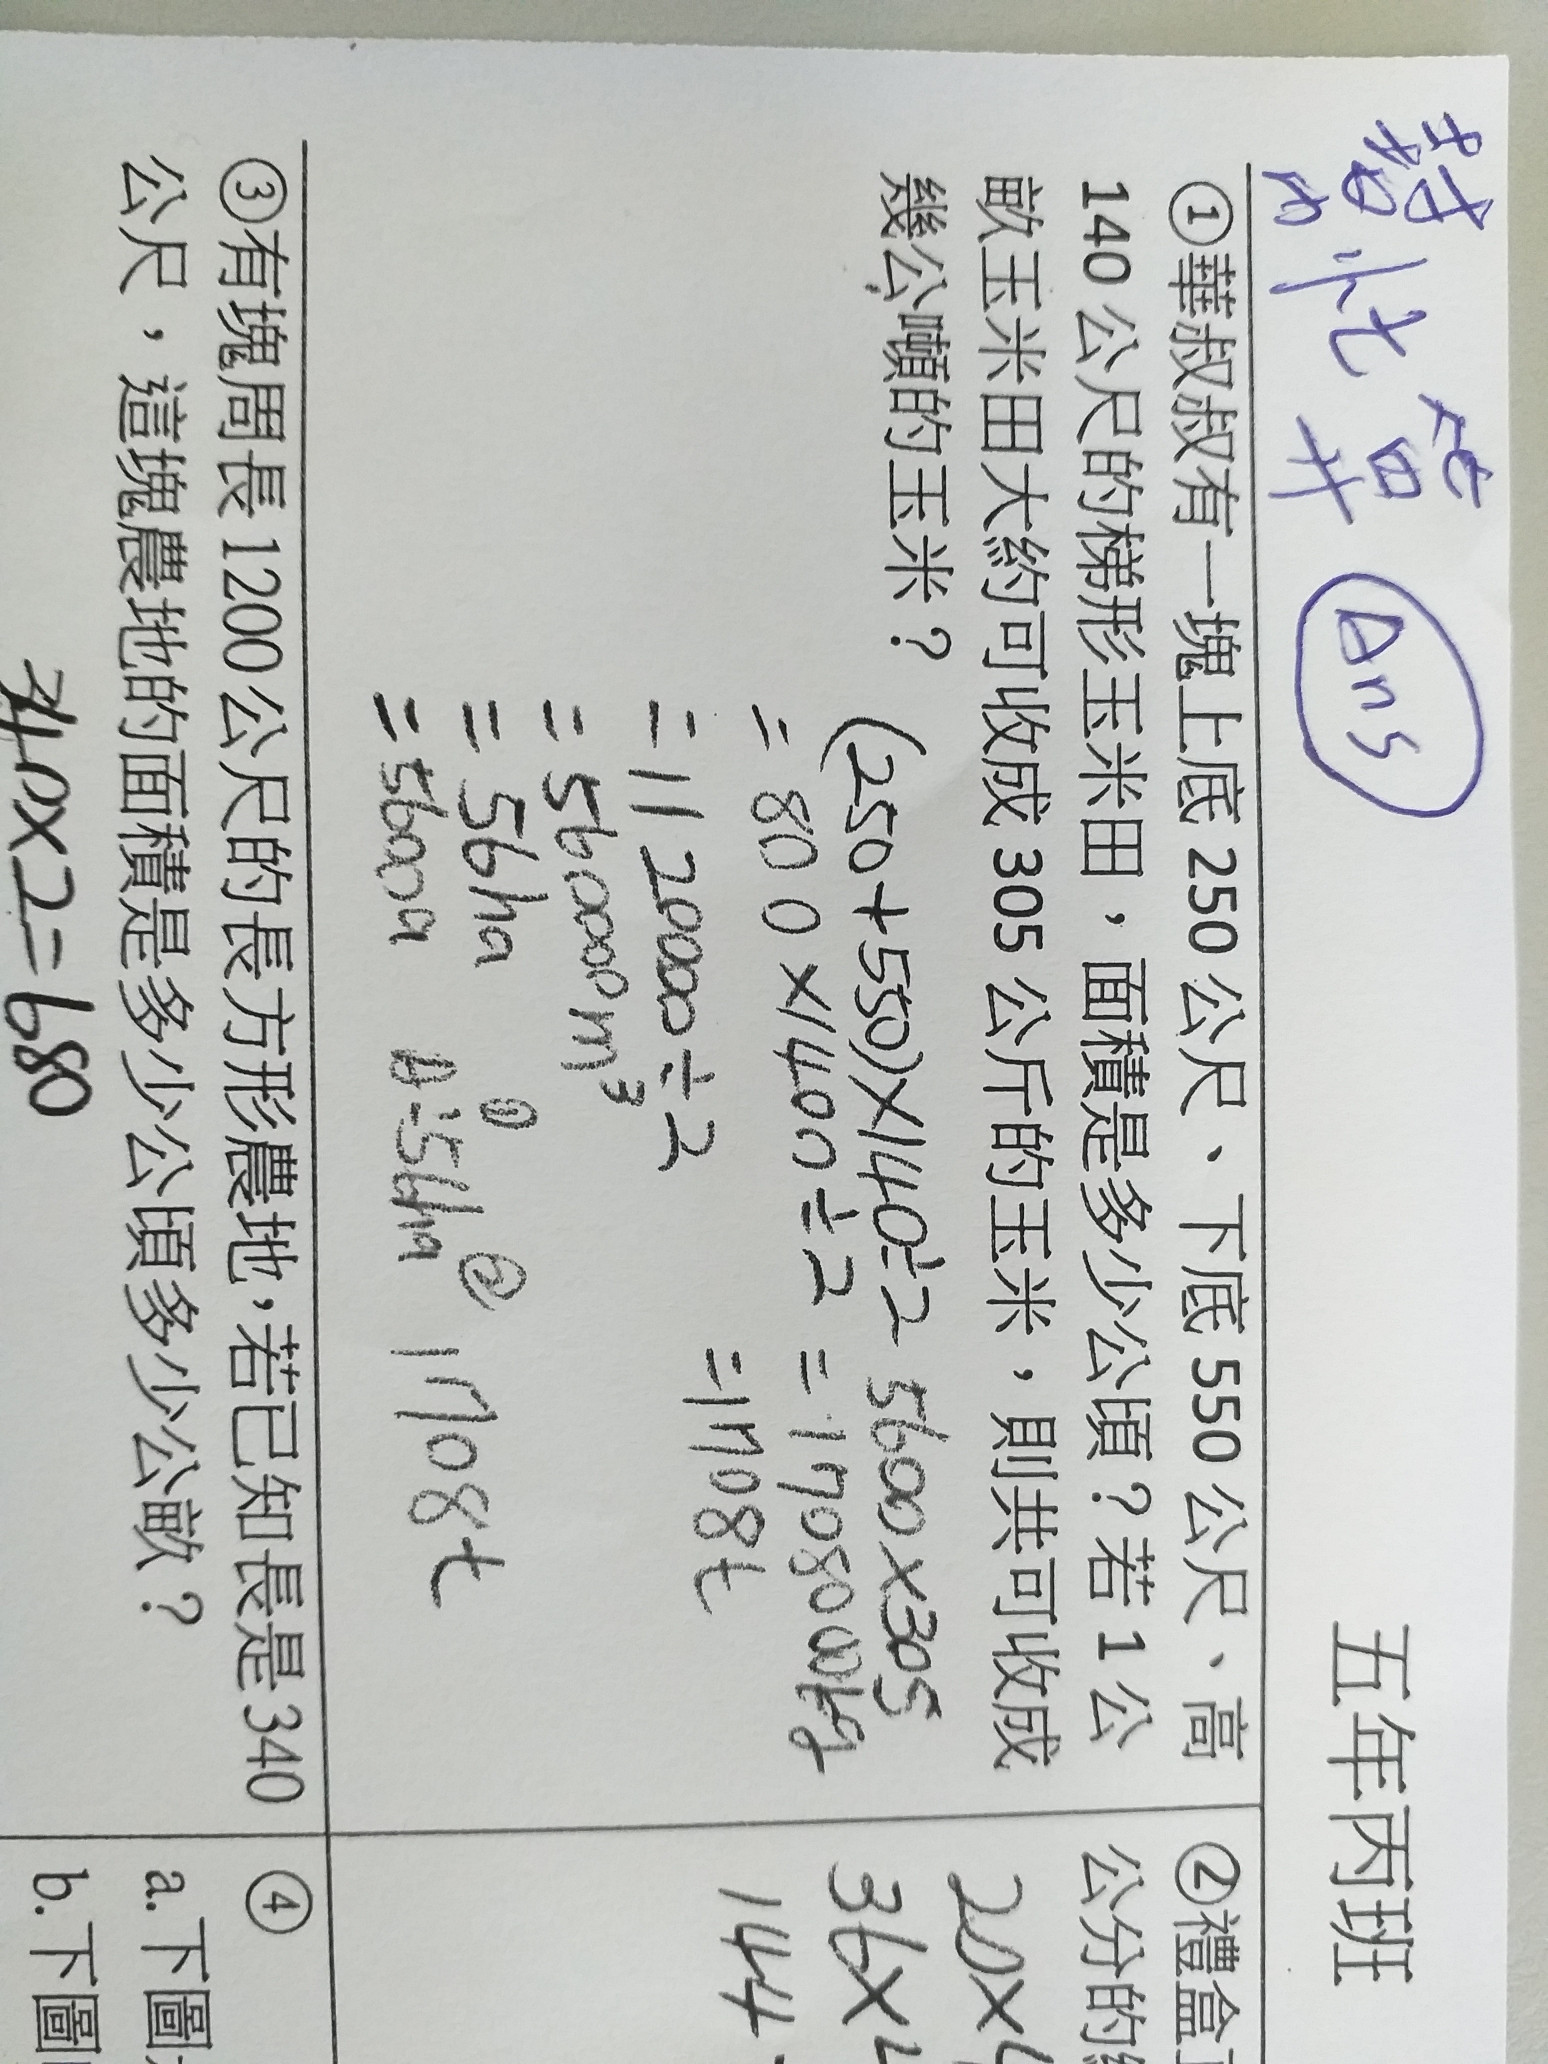 五年丙班
Ans
①華叔叔有一塊上底 250 公尺、下底 550 公尺、高
140 公尺的梯形玉米田，面積是多少公頃？若 1 公
畝玉米田大約可收成 305 公斤的玉米，則共可收成
幾公噸的玉米？
(250+550)×140÷2
=800×140÷2
=112000÷2
=56000m³
=5.6ha
=560a
5600×305
=1708000kg
=1708t
A:①5.6ha ②1708t
②禮盒
公分的
20×4
36×
144
③有塊周長 1200 公尺的長方形農地，若已知長是 340
公尺，這塊農地的面積是多少公頃多少公畝？
340×2=680
④
a.下圖
b.下圖